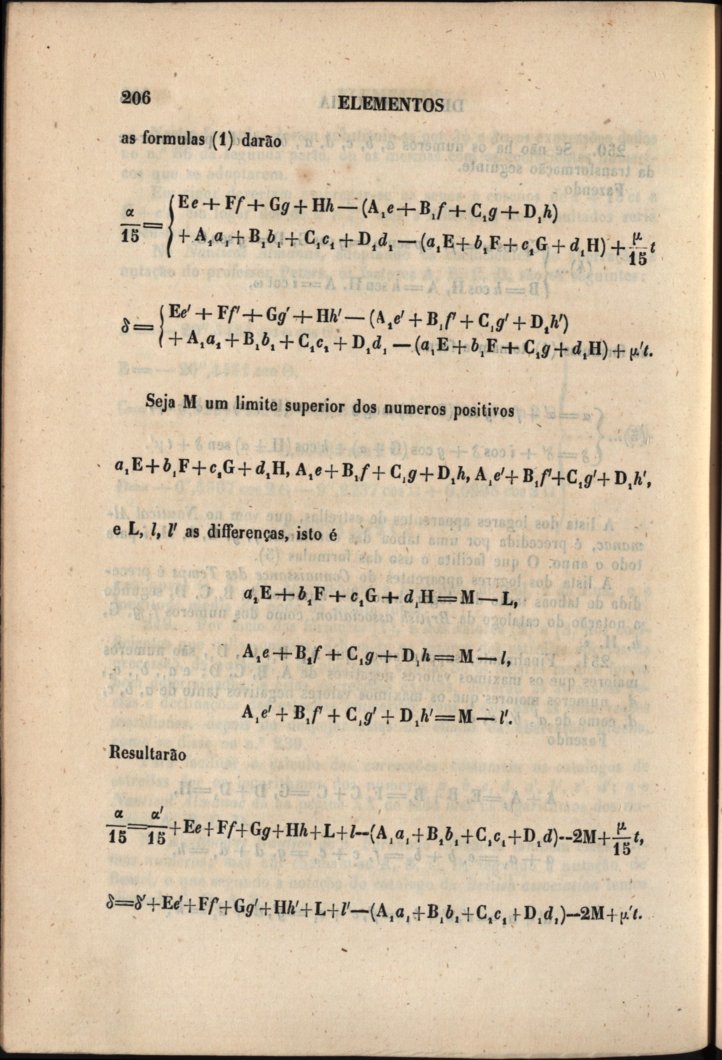 206 ELEMENTOS
as formulas (1) darão
α/15 = { Ee + Ff + Gg + Hh — (A₁e + B₁f + C₁g + D₁h)
+ A₁a₁ + B₁b₁ + C₁c₁ + D₁d₁ — (a₁E + b₁F + c₁G + d₁H) + μ/15 t
δ = { Ee' + Ff' + Gg' + Hh' — (A₁e' + B₁f' + C₁g' + D₁h')
+ A₁a₁ + B₁b₁ + C₁c₁ + D₁d₁ — (a₁E + b₁F + C₁g + d₁H) + μ't.
Seja M um limite superior dos numeros positivos
a₁E + b₁F + c₁G + d₁H, A₁e + B₁f + C₁g + D₁h, A₁e' + B₁f' + C₁g' + D₁h',
e L, l, l' as differenças, isto é
a₁E + b₁F + c₁G + d₁H = M — L,
A₁e + B₁f + C₁g + D₁h = M — l,
A₁e' + B₁f' + C₁g' + D₁h' = M — l'.
Resultarão
α/15 = α'/15 + Ee + Ff + Gg + Hh + L + l — (A₁a₁ + B₁b₁ + C₁c₁ + D₁d) — 2M + μ/15 t,
δ = δ' + Ee' + Ff' + Gg' + Hh' + L + l' — (A₁a₁ + B₁b₁ + C₁c₁ + D₁d₁) — 2M + μ't.